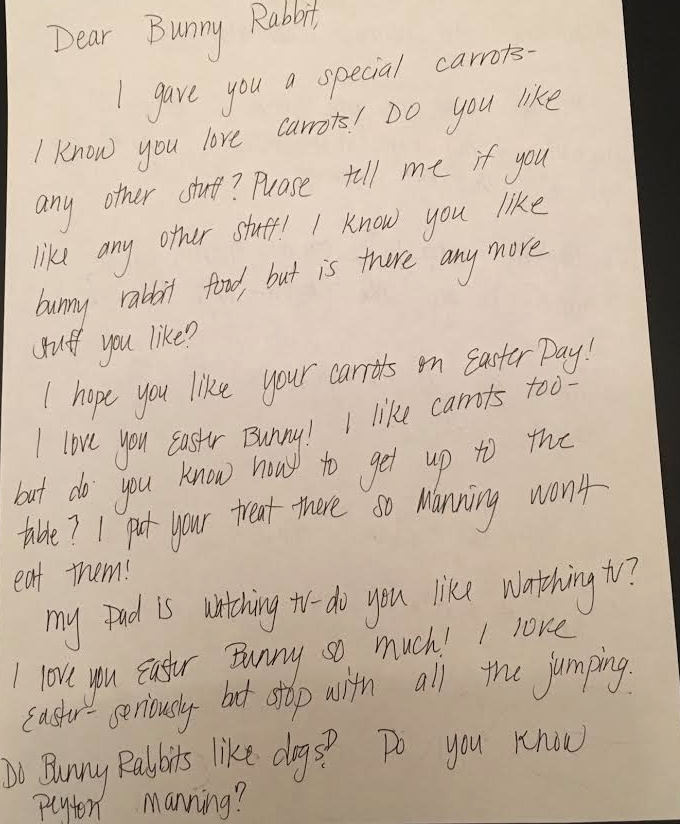 Dear Bunny Rabbit,
I gave you a special carrots-
I know you love carrots! Do you like
any other stuff? Please tell me if you
like any other stuff! I know you like
bunny rabbit food, but is there any more
stuff you like?
I hope you like your carrots on Easter Day!
I love you Easter Bunny! I like carrots too-
but do you know how to get up to the
table? I put your treat there so Manning won't
eat them!
my Dad is watching tv-do you like watching tv?
I love you Easter Bunny so much! I love
Easter- seriously but stop with all the jumping.
Do Bunny Rabbits like dogs? Do you know
Peyton Manning?